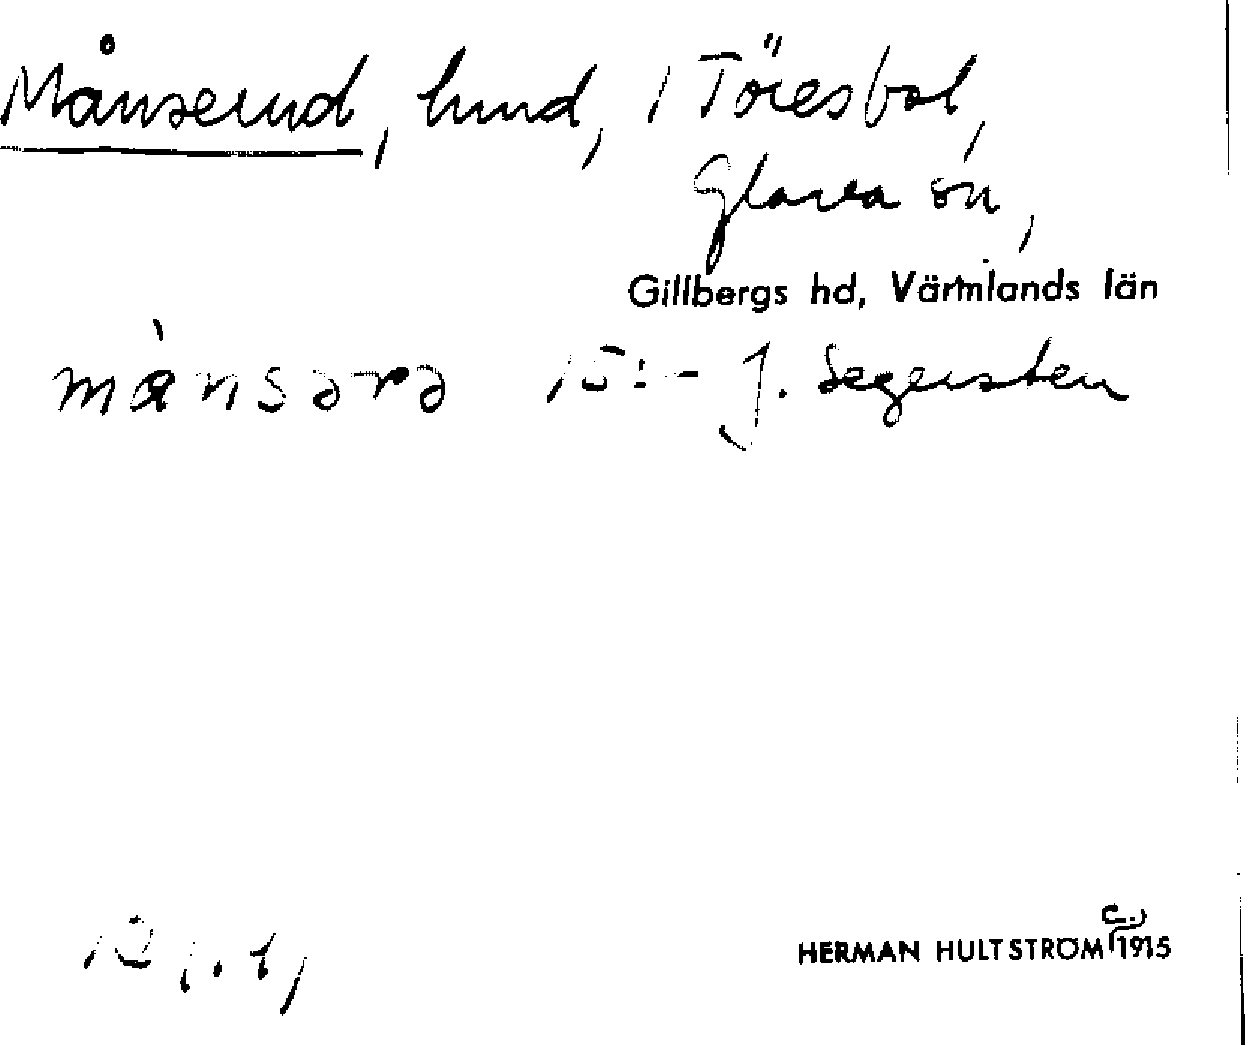 Månserud, hmd, 1 Töresbol,
Glava sn,
Gillbergs hd, Värmlands län
mànsərə 15:- J. Segersten
HERMAN HULTSTRÖM C.) 1915